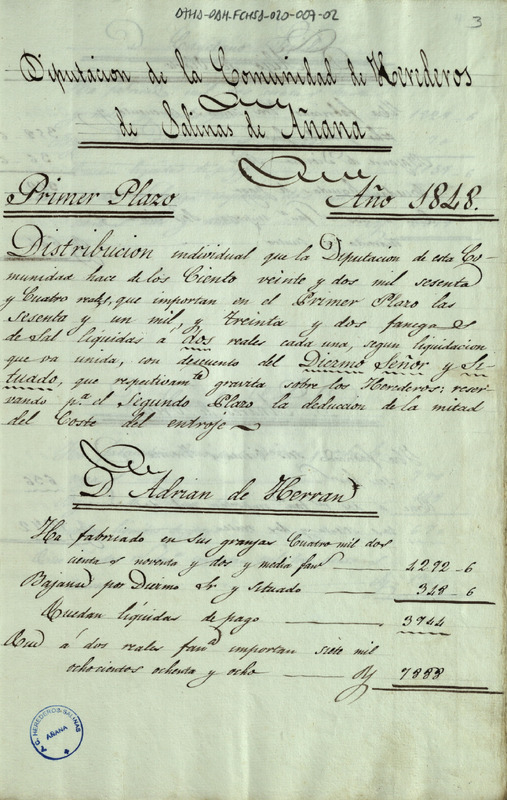 ATHA-DAH-FCHSA-020-007-02
3
Diputacion de la Comunidad de Herederos
de Salinas de Añana
Primer Plazo Año 1848.
Distribucion individual que la Diputacion de esta Co-
munidad hace de los Ciento veinte y dos mil sesenta
y Cuatro reales, que importan en el Primer Plazo las
Sesenta y un mil, y treinta y dos fanegas
de Sal líquidas a dos reales cada una, segun liquidacion
que va unida, con descuento del Diezmo Señor y Si-
tuado, que respectivamte gravita sobre los Herederos: reser-
vando pa el Segundo Plazo la deduccion de la mitad
del Coste del entroje
D. Adrian de Herran
Ha fabricado en sus granjas Cuatro mil dos
cientas noventa y dos y media fans 4292-6
Bajanse por Diezmo Sr y Situado 348-6
Quedan líquidas de pago 3944
Que á dos reales fana importan siete mil
ochocientos ochenta y ocho 7888
A. C. HEREDEROS SALINAS
AÑANA